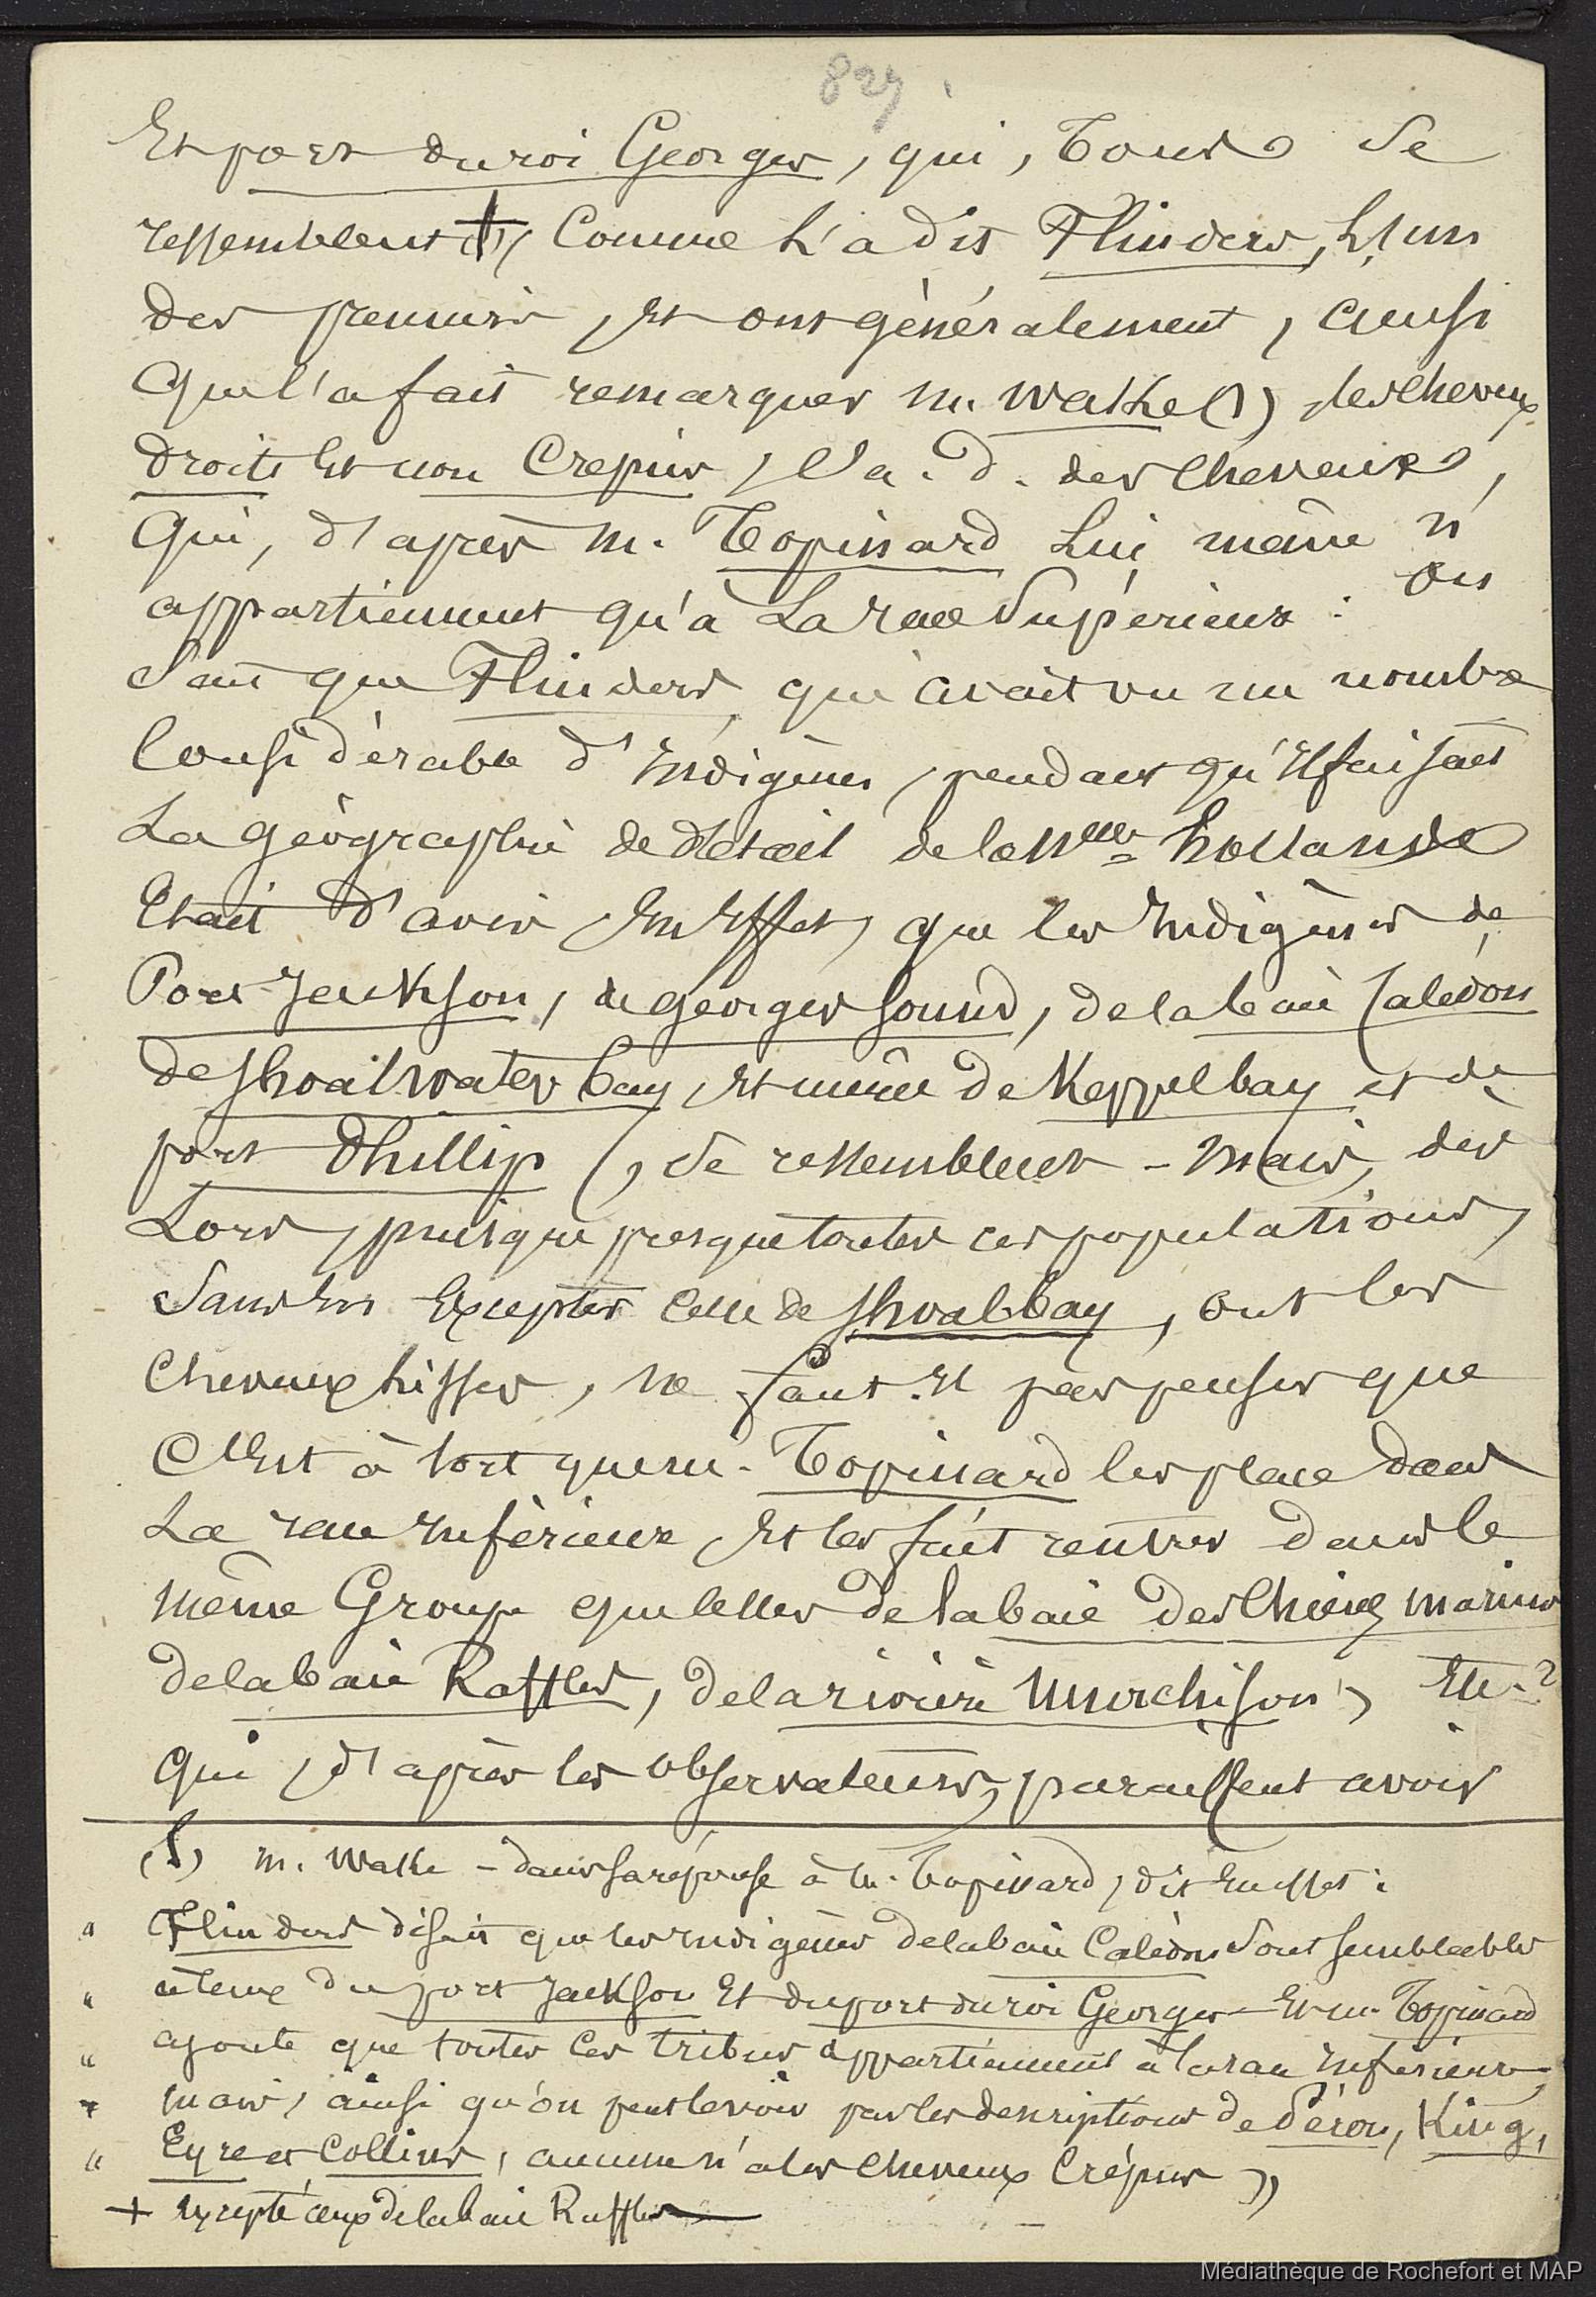 827
Et port du roi Georges, qui, tous se
ressemblent + (1) comme l'a dit Flinders, l'un
des premiers, et ont généralement, ainsi
que l'a fait remarquer M. Wake (1) les cheveux
droits et non crepus, c'a. d. des cheveux,
qui, d'après M. Topinard lui même n'
appartiennent qu'à la race supérieure : on
sait que Flinders, qui avait vu un nombre
considérable d'Indigènes, pendant qu'il faisait
la géographie de détail de la Nlle hollande
était d'avis, en effet, que les indigènes de
Port Jackson, de georges sound, de la baie Calédon
de shoalwater bay, et même de Keppel bay et de
port Phillip, se ressemblent - mais, dès
lors, puisque presque toutes ces populations,
sans en excepter celle de shoalbay, ont les
cheveux lisses, ne faut-il pas penser que
c'est à tort que M. Topinard les place dans
la race inférieure, et les fait rentrer dans le
même Groupe que celles de la baie des Chiens marins
de la baie Raffles, de la rivière Murchison, etc.
qui, d'après les observateurs, paraissent avoir
(1) M. Wake - dans sa réponse à M. Topinard, dit en effet :
" Flinders disait que les indigènes de la baie Calédon sont semblables
" à ceux du port Jackson et du port du roi Georges - et M. Topinard
" ajoute que toutes ces tribus appartiennent à la race inférieure,
" mais, ainsi qu'on peut le voir par les descriptions de Péron, King,
" Eyre et Collins, aucune n'a les cheveux crépus "
+ excepté ceux de la baie Raffles
Médiathèque de Rochefort et MAP